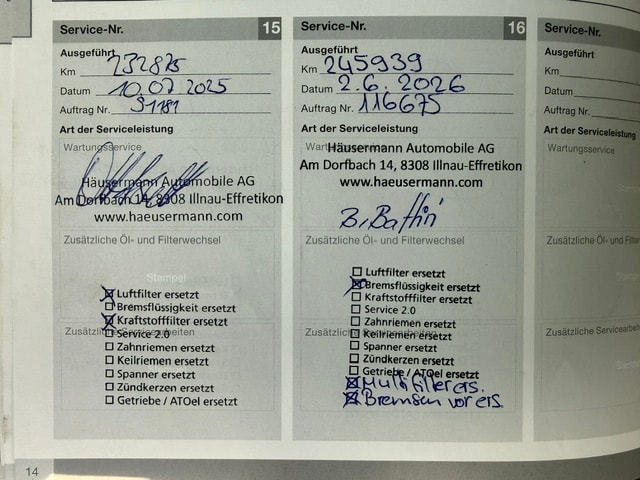 Service-Nr. 15
Ausgeführt
Km 232875
Datum 10.07 2025
Auftrag Nr. 91181
Art der Serviceleistung
Wartungsservice
Häusermann Automobile AG
Am Dorfbach 14, 8308 Illnau-Effretikon
www.haeusermann.com
Zusätzliche Öl- und Filterwechsel
Stempel
Luftfilter ersetzt
Bremsflüssigkeit ersetzt
Kraftstofffilter ersetzt
Zusätzliche Servicearbeiten
Service 2.0
Zahnriemen ersetzt
Keilriemen ersetzt
Spanner ersetzt
Zündkerzen ersetzt
Getriebe / ATOel ersetzt
Service-Nr. 16
Ausgeführt
Km 245939
Datum 2.6.2026
Auftrag Nr. 116675
Art der Serviceleistung
Wartungsservice
Häusermann Automobile AG
Am Dorfbach 14, 8308 Illnau-Effretikon
www.haeusermann.com
Zusätzliche Öl- und Filterwechsel
Luftfilter ersetzt
Bremsflüssigkeit ersetzt
Kraftstofffilter ersetzt
Service 2.0
Zahnriemen ersetzt
Zusätzliche Servicearbeiten
Keilriemen ersetzt
Spanner ersetzt
Zündkerzen ersetzt
Getriebe / ATOel ersetzt
Multifilter ers.
Bremsen vor ers.
Service-Nr.
Ausgeführt
Km
Datum
Auftrag Nr.
Art der Serviceleistung
Wartungsservice
Zusätzliche Öl- und
Zusätzliche Servicearbeit
14